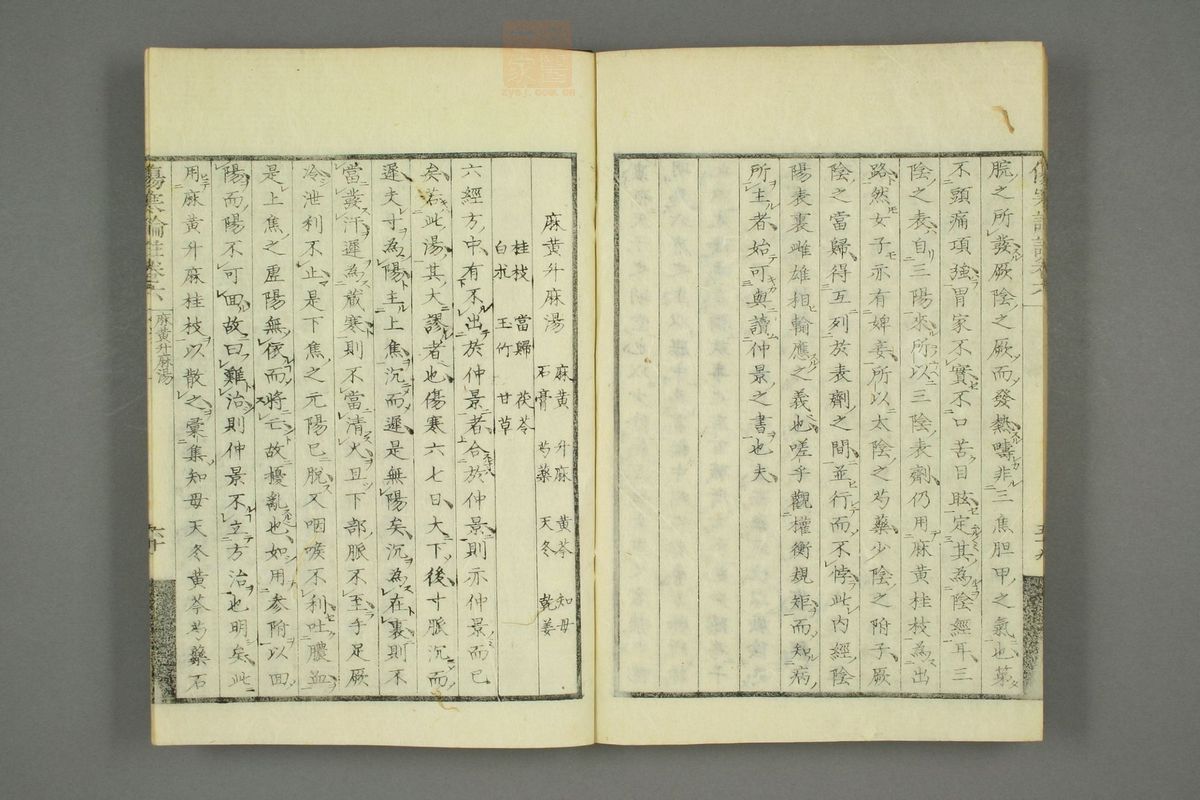 脘之所發厥陰之厥而發熱疇非三焦胆甲之氣也第
不頭痛項強胃家不實不口苦目眩定其為陰經耳三
陰之表自三陽來所以三陰表劑仍用麻黃桂枝為出
路然女子亦有婢妾所以太陰之芍藥少陰之附子厥
陰之當歸得互列於表劑之間並行而不悖此內經陰
陽表裏雌雄相輸應之義也嗟乎觀權衡規矩而知病
所主者始可與讀仲景之書也夫
麻黃升麻湯 麻黃 升麻 黃芩 知母
石膏 芍藥 天冬 乾姜
桂枝 當歸 茯苓
白朮 玉竹 甘草
六經方中有不出於仲景者合於仲景則亦仲景而已
矣若此湯其大謬者也傷寒六七日大下後寸脈沉而
遲夫寸為陽主上焦沉而遲是無陽矣沉為在裏則不
當發汗遲為蔵寒則不當清火且下部脈不至手足厥
冷泄利不止是下焦之元陽已脫又咽喉不利吐膿血
是上焦之虛陽無依而將亡故擾亂也如用參附以回
陽而陽不可回故曰難治則仲景不立方治也明矣此
用麻黃升麻桂枝以散之彙集知母天冬黃芩芍藥石
傷寒論註卷六 麻黃升麻湯 六十